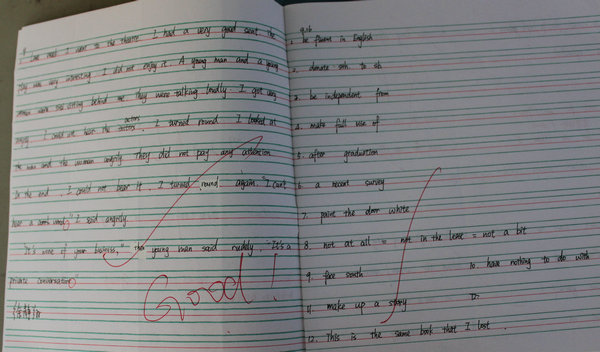 9.
1. Last week I went to the theatre. I had a very good seat. The
play was very interesting. I did not enjoy it. A young man and a young
woman were sitting behind me. They were talking loudly. I got very
angry. I could not hear the actors. I turned round. I looked at
the man and the woman angrily. They did not pay any attention
In the end, I could not bear it. I turned round again. "I can't
hear a word" I said angrily.
"It's none of your business," the young man said rudely "It's a
private conversation"
Good!
9.16
1. be fluent in English
2. donate sth. to sb
3. be independent from
4. make full use of
5. after graduation
6. a recent survey
7. paint the door white
8. not at all = not in the least = not a bit
9. face south
10. have nothing to do with
11. make up a story
12.
12. This is the same book that I lost.